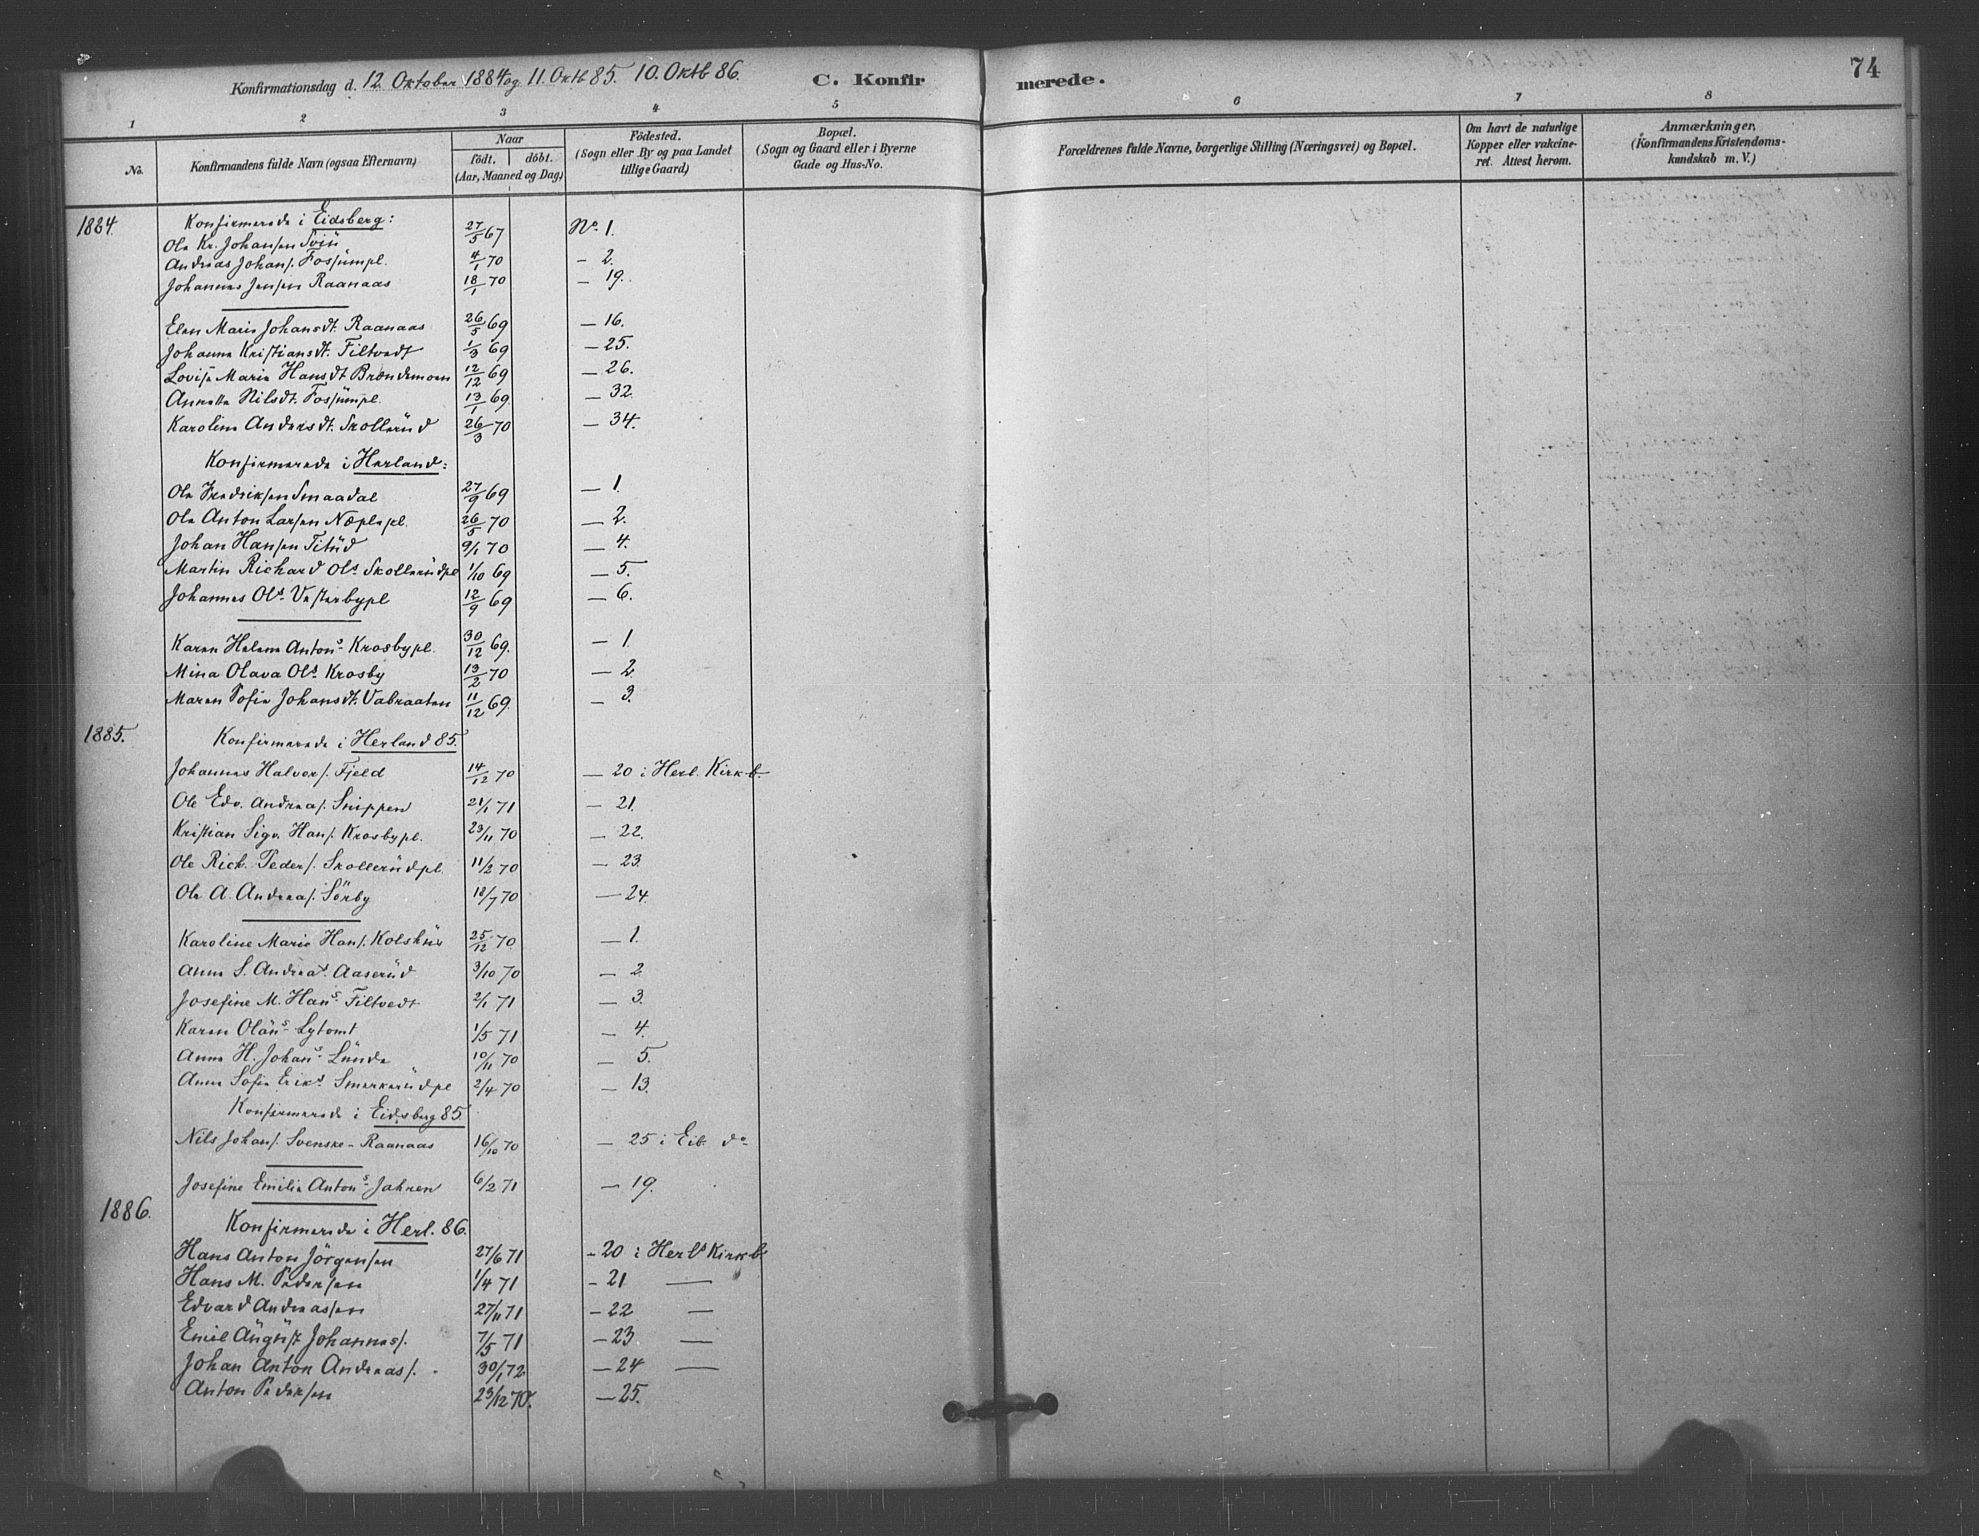 Konfirmationsdag d. 12 Oktober 1884 og 11. Oktb 85. 10. Oktb 86. C. Konfirmerede. 74
1 2 3 4 5 6 7 8
No. Konfirmandens fulde Navn (ogsaa Efternavn) Naar født. døbt. (Aar, Maaned og Dag) Fødested. (Sogn eller By og paa Landet tillige Gaard) Bopæl. (Sogn og Gaard eller i Byerne Gade og Hus-No. Forældrenes fulde Navne, borgerlige Stilling (Næringsvei) og Bopæl. Om havt de naturlige Kopper eller vakcineret. Attest herom. Anmærkninger, (Konfirmandens Kristendomskundskab m. V.)
1884. Konfirmerede i Eidsberg:
Ole Kr. Johansen Sviu 27/5 67 No. 1.
Andreas Johans. Fossumpl. 4/1 70 - 2.
Johannes Jensen Raanaas 18/1 70 - 19.
Elen Marie Johansdt. Raanaas 26/5 69 - 16.
Johanne Kristiansdt. Filtvedt 1/3 69 - 25.
Lovise Marie Hansdt Brændemoen 12/12 69 - 26.
Annette Nilsdt. Fossumpl. 13/1 69 - 32
Karoline Andersdt. Skollerud 26/3 70 - 34.
Konfirmerede i Herland:
Ole Fredriksen Smaadal 27/9 69 - 1.
Ole Anton Larsen Næplepl. 26/5 70 - 2.
Johan Hansen Titud 9/1 70 - 4.
Martin Richard Ols. Skollerudpl 1/10 69 - 5.
Johannes Ols. Vesterbypl 12/9 69 - 6.
Karen Helene Antons. Krosbypl. 30/12 69. - 1.
Mina Olava Ols. Krosby 13/2 70 - 2
Maren Sofie Johansdt. Vabraaten 11/12 69. - 3.
1885. Konfirmerede i Herland 85.
Johannes Halvors. Fjeld 14/12 70 - 20 i Herl. Kirkb.
Ole Edv. Andreas. Snippen 21/1 71 - 21.
Kristian Sigv. Hans. Krosbypl. 23/11 70 - 22.
Ole Rich. Peders. Skollerudpl. 11/2 70 - 23.
Ole A. Andreas. Sørby 18/7 70 - 24.
Karoline Marie Hans. Kolshus 25/12 70 - 1.
Anne S. Andreas. Aaserud 3/10 70 - 2
Josefine M. Hans. Filtvedt 2/1 71 - 3.
Karen Olâns. Lytomt 1/5 71 - 4.
Anne H. Johans. Lunde 10/11 70 - 5.
Anne Sofie Eriks. Smerkerudpl 2/4 70 - 13.
Konfirmerede i Eidsberg 85.
Nils Johans. Svenske-Raanaas 16/10 70 - 25 i Eib. do
Josefine Emilie Antons. Jahren 6/2 71 - 19.
1886. Konfirmerede i Herl. 86.
Hans Anton Jörgensen 27/6 71 - 20 i Herls Kirkb.
Hans M. Pedersen 1/4 71 - 21 —
Edvard Andreassen 27/11 71 - 22 —
Emil August Johanness. 7/5 71 - 23 —
Johan Anton Andreass. 30/1 72 - 24 —
Anton Pedersen 23/12 70. - 25.